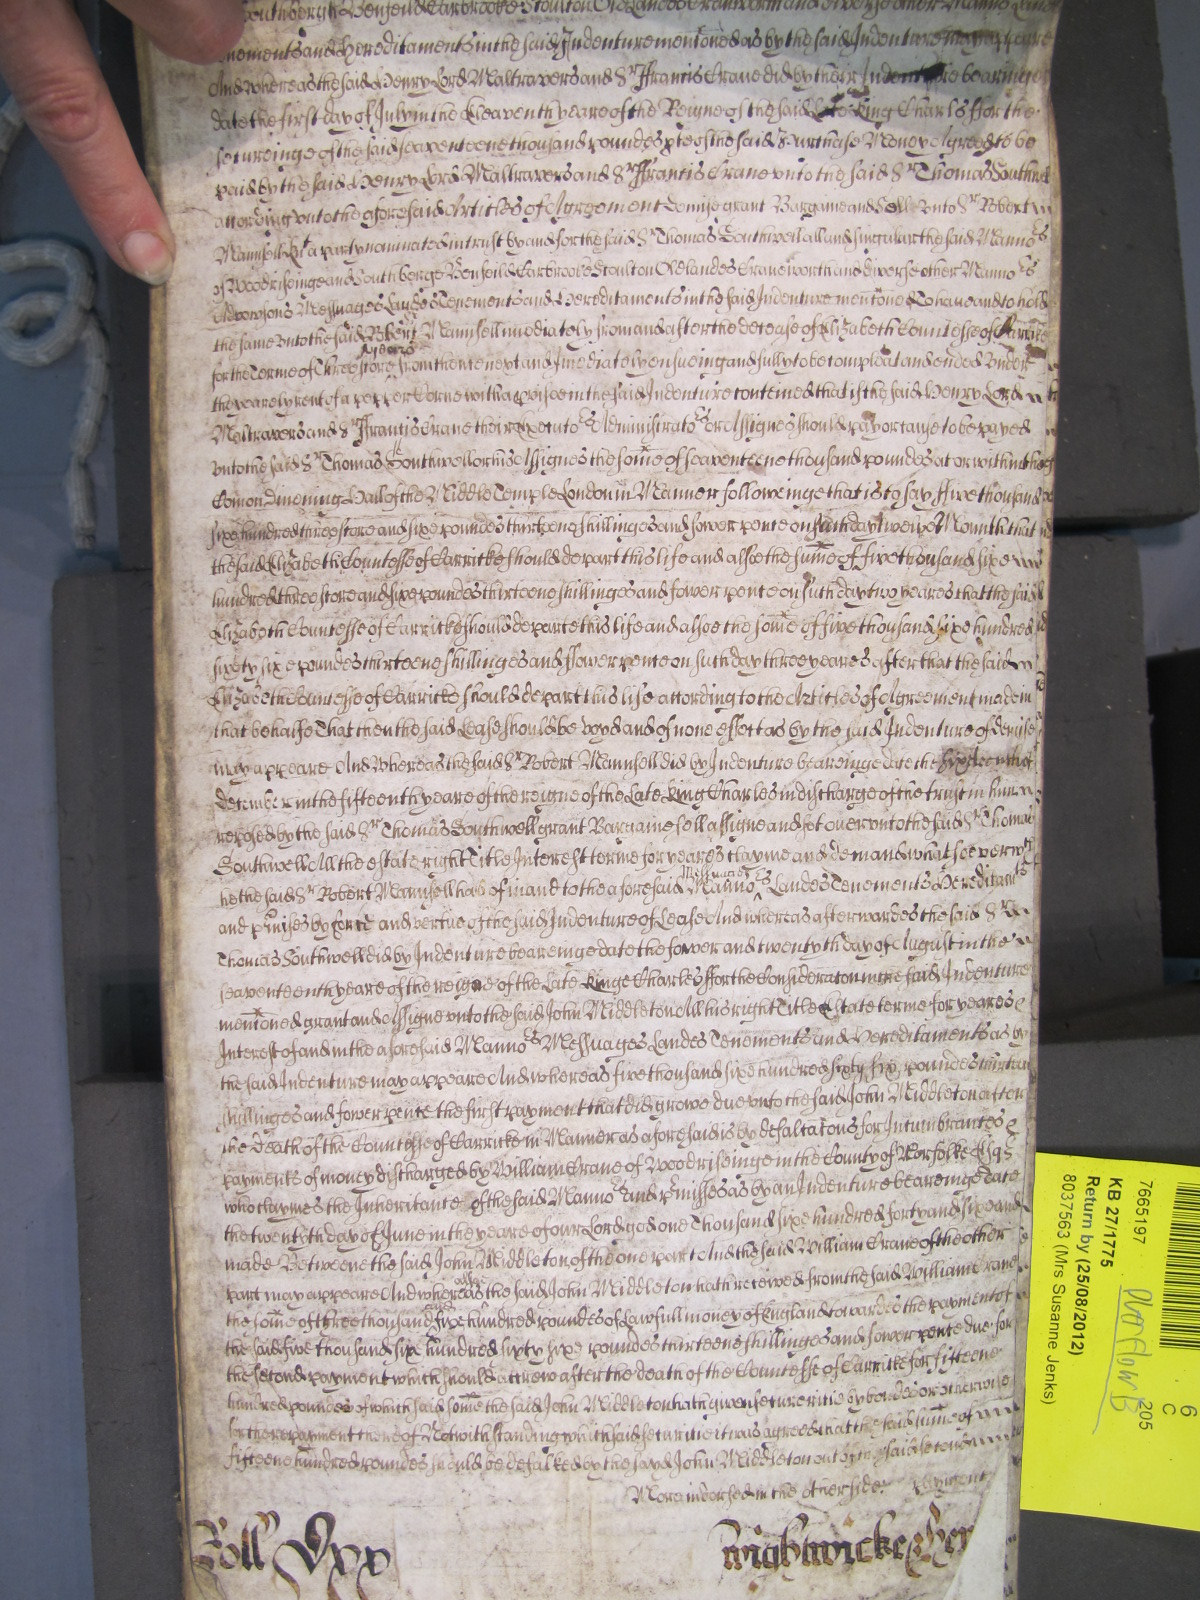 Southbergh Henseild Carbrooke Stoulton Oldlandes Craneworth and diverse other Manno
Tenements and Hereditaments in the said Indenture mentioned as by the said Indenture may appeare
And whereas the said Henry Lord Maltravers and Sr Ffrancis Crane did by their Indenture beareinge
date the first day of July in the Eleaventh yeare of the Reigne of the said Late King Charles ffor the
secureinge of the said seaventeene thousand poundes pte of the said Purchase Money Agreed to be
paid by the said Henry Lord Maltravers and Sr Ffrancis Crane unto the said Sr Thomas Southwell
according unto the aforesaid Articles of Agreement Demise grant Bargaine and Sell unto Sr Robert
Mannsell Kt a party nominated in trust by and for the said Sr Thomas Southwell all and singular the said Manno:rs
of Woodriseinge and Southberge Henseild Carbrooke Stoulton Oldlandes Craneworth and diverse other Manno:rs
Advowsons Messuages Landes Tenements and Hereditaments in the said Indenture mentioned To have and to hold
the same unto the said Robert Mannsell imediately from and after the decease of Elizabeth Countesse of Carricke
for the Terme of Threescore yeares from thence next and Imediately ensueing and fully to be compleat and ended Under
the yearely rent of a pepper Corne with a proviso in the said Indenture conteined that if the said Henry Lord
Maltravers and Sr Ffrancis Crane their executo:rs Administrato:rs or Assignes should pay or cause to be payed
unto the said Sr Thomas Southwell or his Assignes the some of seaventeene thousand poundes at or within the
Comon Dineinge Hall of the Middle Temple London in Manner followeinge that is to say Ffive thousand
sixe hundred threescore and sixe poundes thirteene shillinges and fower pence on such day twelve Month that
the said Elizabeth Countesse of Carricke should depart this life and alsoe the sume of five thousand sixe
hundred threescore and sixe poundes thirteene shillinges and fower pence on such day two yeares that the said
Elizabeth Countesse of Carricke should departe this life and alsoe the some of five thousand sixe hundred
sixty sixe poundes thirteene shillinges and fower pence on such day three yeares after that the said
Elizabeth Countesse of Carricke should depart this life according to the Articles of Agreement made in
that behalfe That then the said Lease should be voyd and of none effect as by the said Indenture of demise
may appeare And whereas the said Sr Robert Mannsell did by Indenture beareinge date the
December in the fifteenth yeare of the reigne of the Late King Charles in discharge of the trust in him
reposed by the said Sr Thomas Southwell grant Bargaine sell assigne and set over unto the said Sr Thomas
Southwell All the estate right Title Interest terme for yeares clayme and demand whatsoever wch
he the said Sr Robert Mannsell had of in and to the aforesaid Manno:rs Messuages Landes Tenements Hereditamts
and pmises by force and vertue of the said Indenture of Lease And whereas afterwardes the said Sr
Thomas Southwell did by Indenture beareinge date the fower and twentyth day of August in the
seaventeenth yeare of the reigne of the Late Kinge Charles ffor the Consideracon in the said Indenture
mencioned grant and Assigne unto the said John Middleton All his right Title Estate terme for yeares &
Interest of and in the aforesaid Manno:rs Messuages Landes Tenements and Hereditaments as by
the said Indenture may appeare And whereas five thousand sixe hundred sixty six poundes thirteene
shillinges and fower pence the first payment that did growe due unto the said John Middleton after
the death of the Countesse of Carricke in Manner as aforesaid is by defalcatons for Incumbrances &
payments of money discharged by William Crane of Woodriseinge in the County of Norfolke Esqr
who claymes the Inheritance of the said Manno:rs and pmisses as by an Indenture beareinge date
the twentyth day of June in the yeare of our Lord god one Thousand sixe hundred forty and sixe and
made Betweene the said John Middleton of the one part And the said William Crane of the other
part may appeare And whereas alsoe the said John Middleton hath received from the said William Crane
the some of three thousand and five hundred poundes of Lawfull money of England towardes the payment of
the said five thousand six hundred sixty sixe poundes thirteene shillinges and fower pence due for
the second payment which should accrew after the death of the Countesse of Carricke for fifteene
hundred poundes of which said some the said John Middleton hath given securitie by bond or otherwise
for the repayment thereof Notwithstanding which said securitie it was agreed that the said sume of
fifteene hundred poundes should be defalked by the sayd John Middleton out of the said second
More indorsed in the other side: Payment
Roll Vxx
Wightwicke Hen
6
C
7665197
205
KB 27/1775
Return by (25/08/2012)
8037563 (Mrs Susanne Jenks)